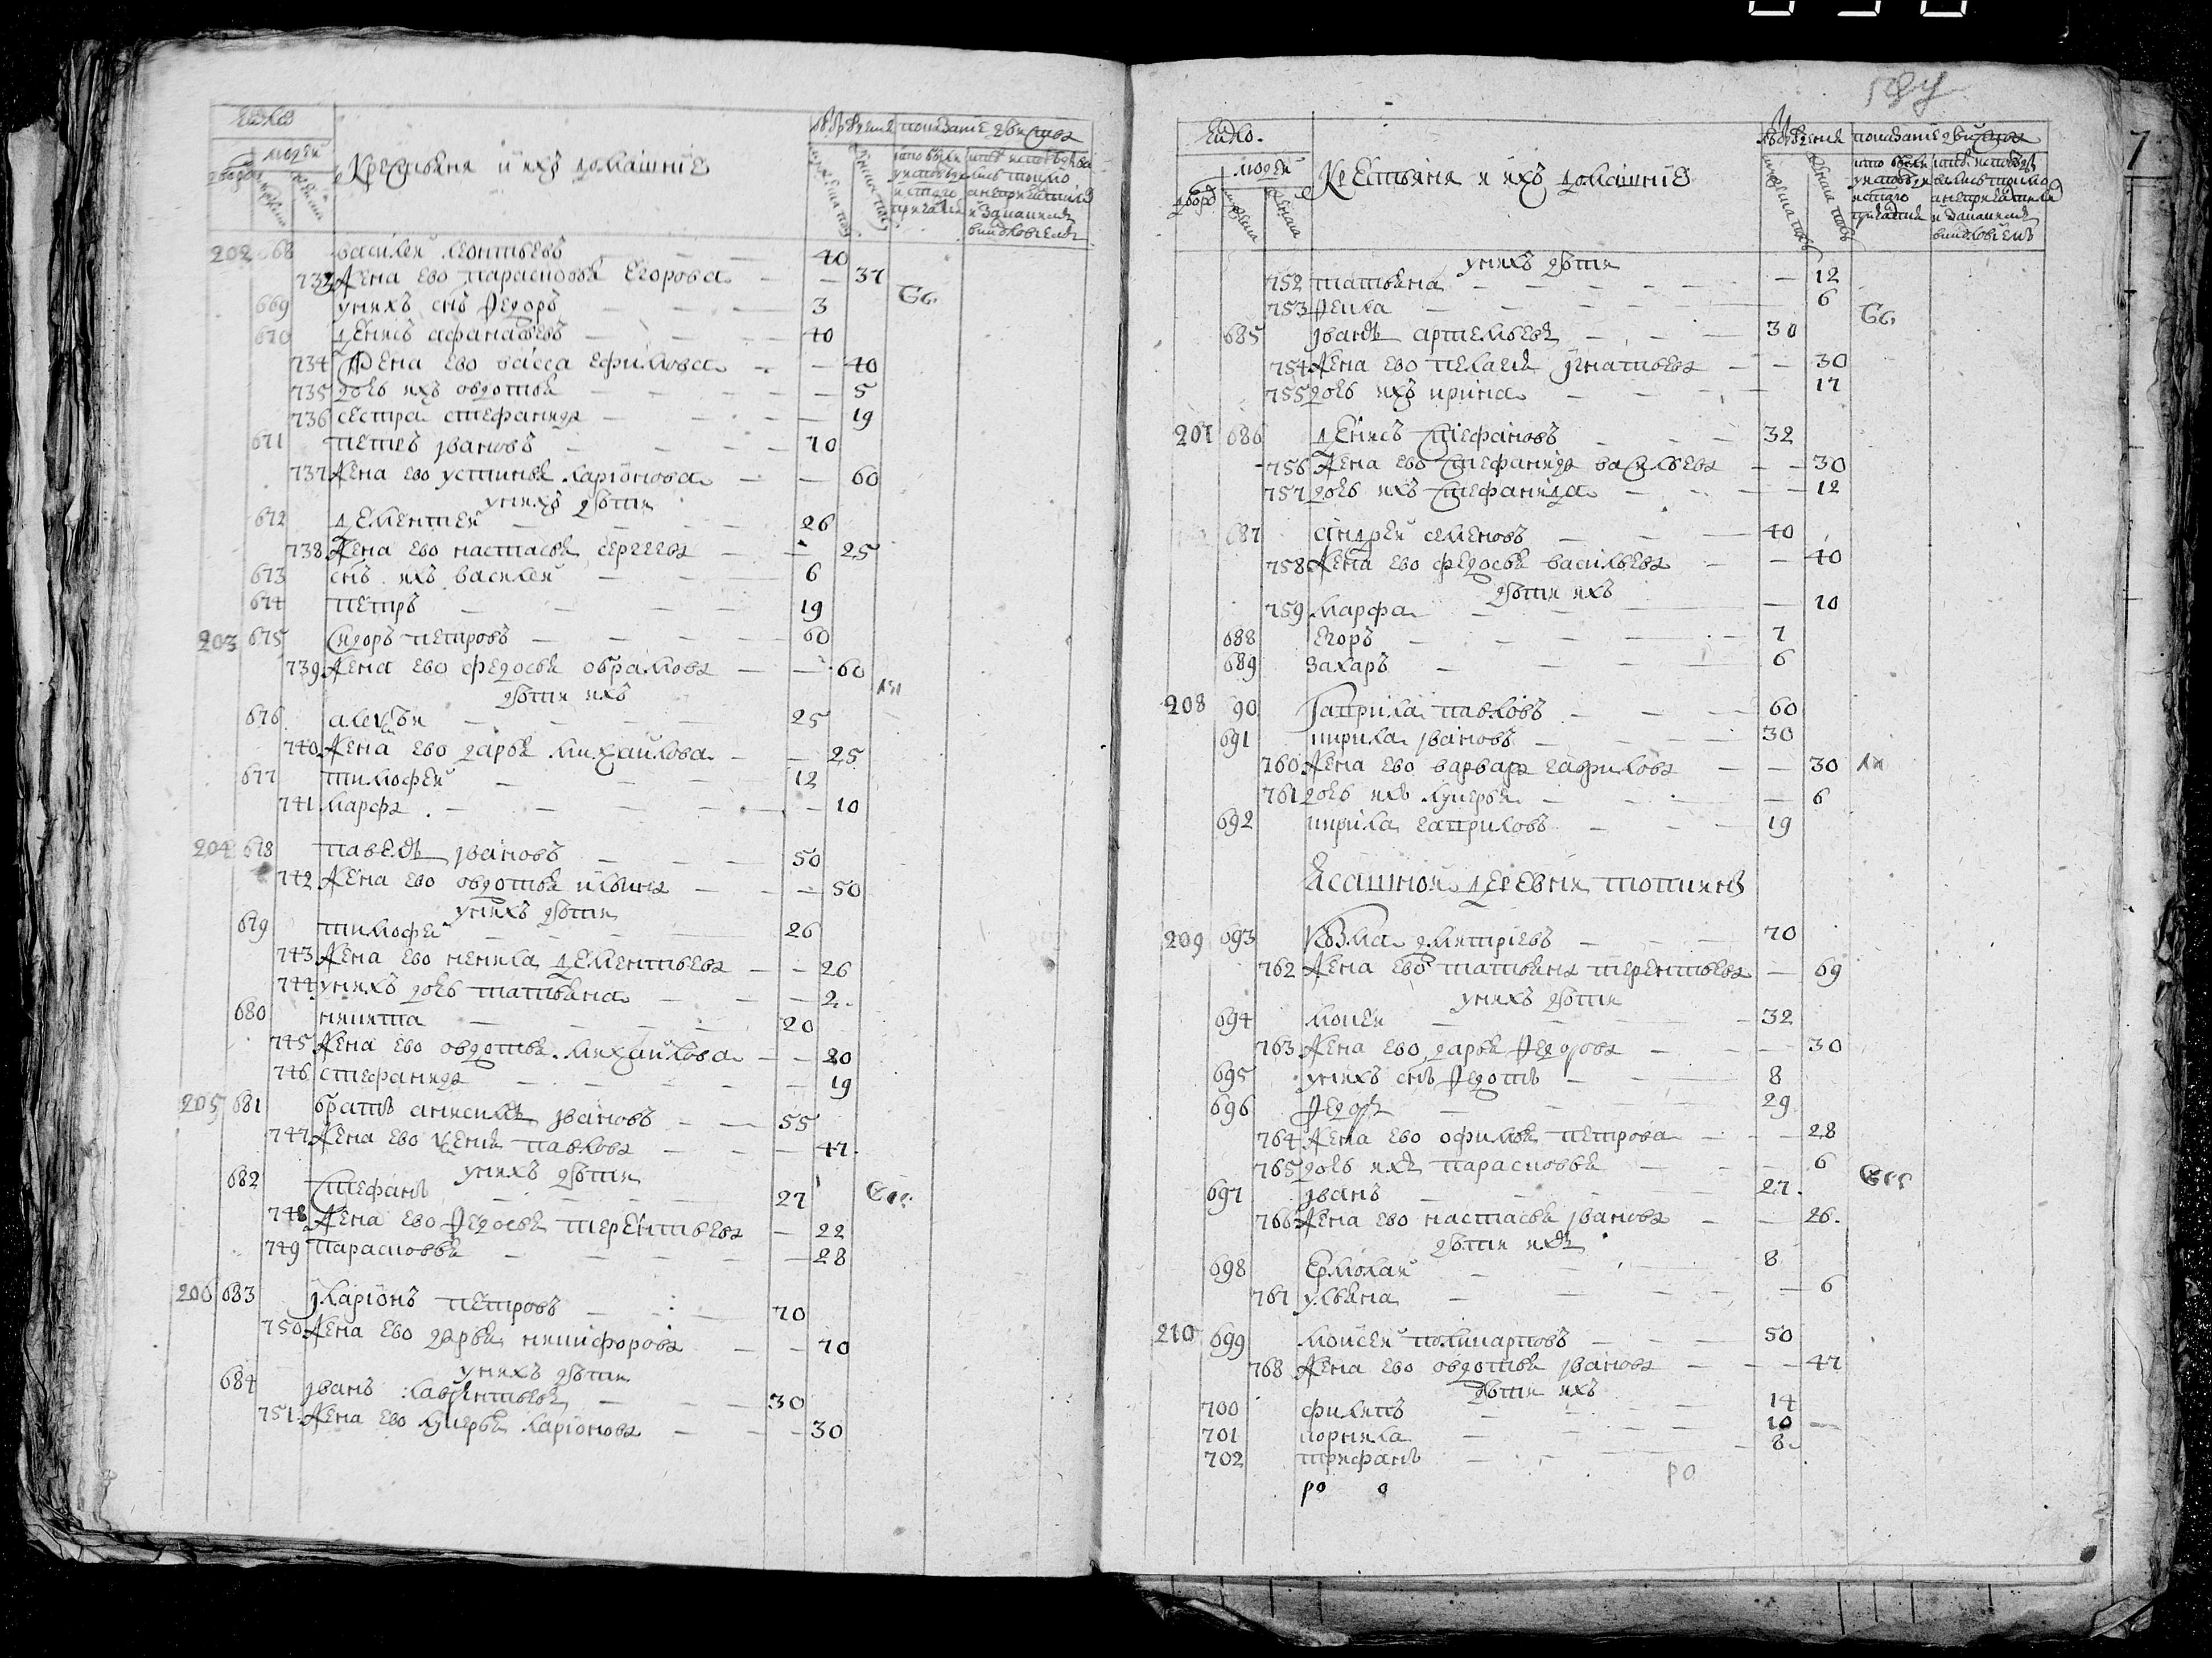 Число
людей
Крестьяня и ихъ домашние
202 668 василей леонтьевъ 40
733 Жена ево парасковья Егорова 37
669 у нихъ снъ Ѳедоръ 3
670 денисъ афанасьевъ 40
734 Жена ево васса ефимова 40
735 дочь ихъ овдотья 5
736 сестра стефанида 19
671 петръ Ивановъ 70
737 Жена ево устинья ларионова 60
у нихъ дѣти
672 дементей 26
738 Жена ево настасья сергеева 25
673 снъ ихъ василей 6
674 петръ 19
203 675 Сидоръ петровъ 60
739 Жена ево федосья обрамова 60
дѣти ихъ
676 алексѣй 25
740 Жена ево дарья михайлова 25
677 тимофей 12
741 марфа 10
204 678 павелъ Ивановъ 50
742 Жена ево овдотья ильина 50
у нихъ дѣти
679 тимофей 26
743 Жена ево ненила дементьева 26
744 у нихъ дочь татьяна 2
680 никита 20
745 Жена ево овдотья михайлова 20
746 стефанида 19
205 681 братъ анисимъ Ивановъ 55
747 Жена ево ксенья павлова 47
у нихъ дѣти
682 Стефанъ 27
748 Жена ево Ѳедосья терентьева 22
749 парасковья 28
206 683 Иларионъ петровъ 70
750 Жена ево дарья никифорова 70
у нихъ дѣти
684 Иванъ лаврентьевъ 30
751 Жена ево лукерья ларионова 30
Число
людей
Крестьяня и ихъ домашние
у нихъ дѣти
752 татьяна 12
753 Ѳекла 6
685 Иванъ артемьевъ 30
754 Жена ево пелагея Игнатьева 30
755 дочь ихъ ирина 17
207 686 денисъ Стефановъ 32
756 Жена ево Стефанида васильева 30
757 дочь ихъ Стефанида 12
687 андрей семеновъ 40
758 Жена ево федосья васильева 40
дѣти ихъ
759 марфа 10
688 Егоръ 7
689 захаръ 6
208 90 Гаврила павловъ 60
691 кирила Ивановъ 30
760 Жена ево варвара гаврилова 30
761 дочь ихъ лукерья 6
692 кирила гавриловъ 19
Ясашной деревни
209 693 Козма дмитриевъ 70
762 Жена ево татьяна терентьева 69
у нихъ дѣти
694 мокей 32
763 Жена ево дарья Ѳедорова 30
695 у нихъ снъ Ѳедотъ 8
696 Ѳедоръ 29
764 Жена ево офимья петрова 28
765 дочь ихъ парасковья 6
697 Иванъ 27
766 Жена ево настасья Иванова 26
дѣти ихъ
698 Ермолай 8
767 ульяна 6
210 699 моисей поликарповъ 50
768 Жена ево овдотья Иванова 47
дѣти ихъ
700 филипъ 14
701 корнила 10
702 трифанъ 8